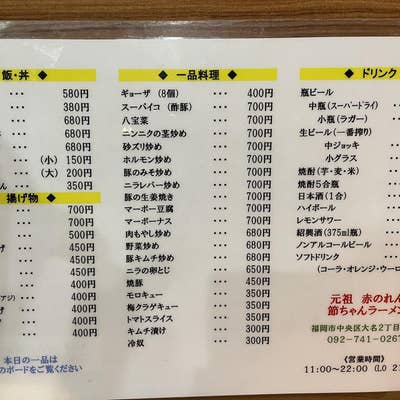 飯・丼 ◆
・・・ 580円
・・・ 380円
・・・ 680円
・・・ 680円
・・・ 680円
(小) 150円
(大) 200円
ん ・・・ 350円
揚げ物 ◆
・・・ 700円
・・・ 700円
本日の一品は
のボードをご覧ください
◆ 一品料理 ◆
ギョーザ (8個) ・・・ 400円
スーパイコ (酢豚) ・・・ 700円
八宝菜 ・・・ 700円
ニンニクの茎炒め ・・・ 700円
砂ズリ炒め ・・・ 700円
ホルモン炒め ・・・ 700円
豚のみそ炒め ・・・ 700円
ニラレバー炒め ・・・ 700円
豚の生姜焼き ・・・ 700円
マーボー豆腐 ・・・ 700円
マーボーナス ・・・ 700円
肉もやし炒め ・・・
野菜炒め ・・・ 680円
豚キムチ炒め ・・・ 680円
ニラの卵とじ ・・・ 650円
焼豚 ・・・ 450円
モロキュー ・・・
梅クラゲキュー ・・・
トマトスライス ・・・ 300円
キムチ漬け ・・・ 300円
冷奴 ・・・ 300円
◆ ドリンク
瓶ビール
中瓶(スーパードライ)
小瓶(ラガー)
生ビール(一番搾り)
中ジョッキ
小グラス
焼酎(芋・麦・米)
焼酎5合瓶
日本酒(1合)
ハイボール
レモンサワー
紹興酒(375ml瓶)
ノンアルコールビール
ソフトドリンク
(コーラ・オレンジ・ウーロ
元祖 赤のれん
節ちゃんラーメン
福岡市中央区大名2丁目
092-741-0267
《営業時間》
11:00~22:00 (LO 21